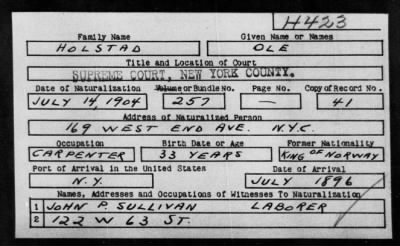 H423
Family Name Given Name or Names
HOLSTAD OLE
Title and Location of Court
SUPREME COURT, NEW YORK COUNTY.
Date of Naturalization Volume or Bundle No. Page No. Copy of Record No.
JULY 14, 1904 257 — 41
Address of Naturalized Person
169 WEST END AVE. N.Y.C.
Occupation Birth Date or Age Former Nationality
CARPENTER 33 YEARS KING OF NORWAY
Port of Arrival in the United States Date of Arrival
N.Y. JULY 1896
Names, Addresses and Occupations of Witnesses To Naturalization
1 JOHN P. SULLIVAN LABORER
2 122 W 63 ST.